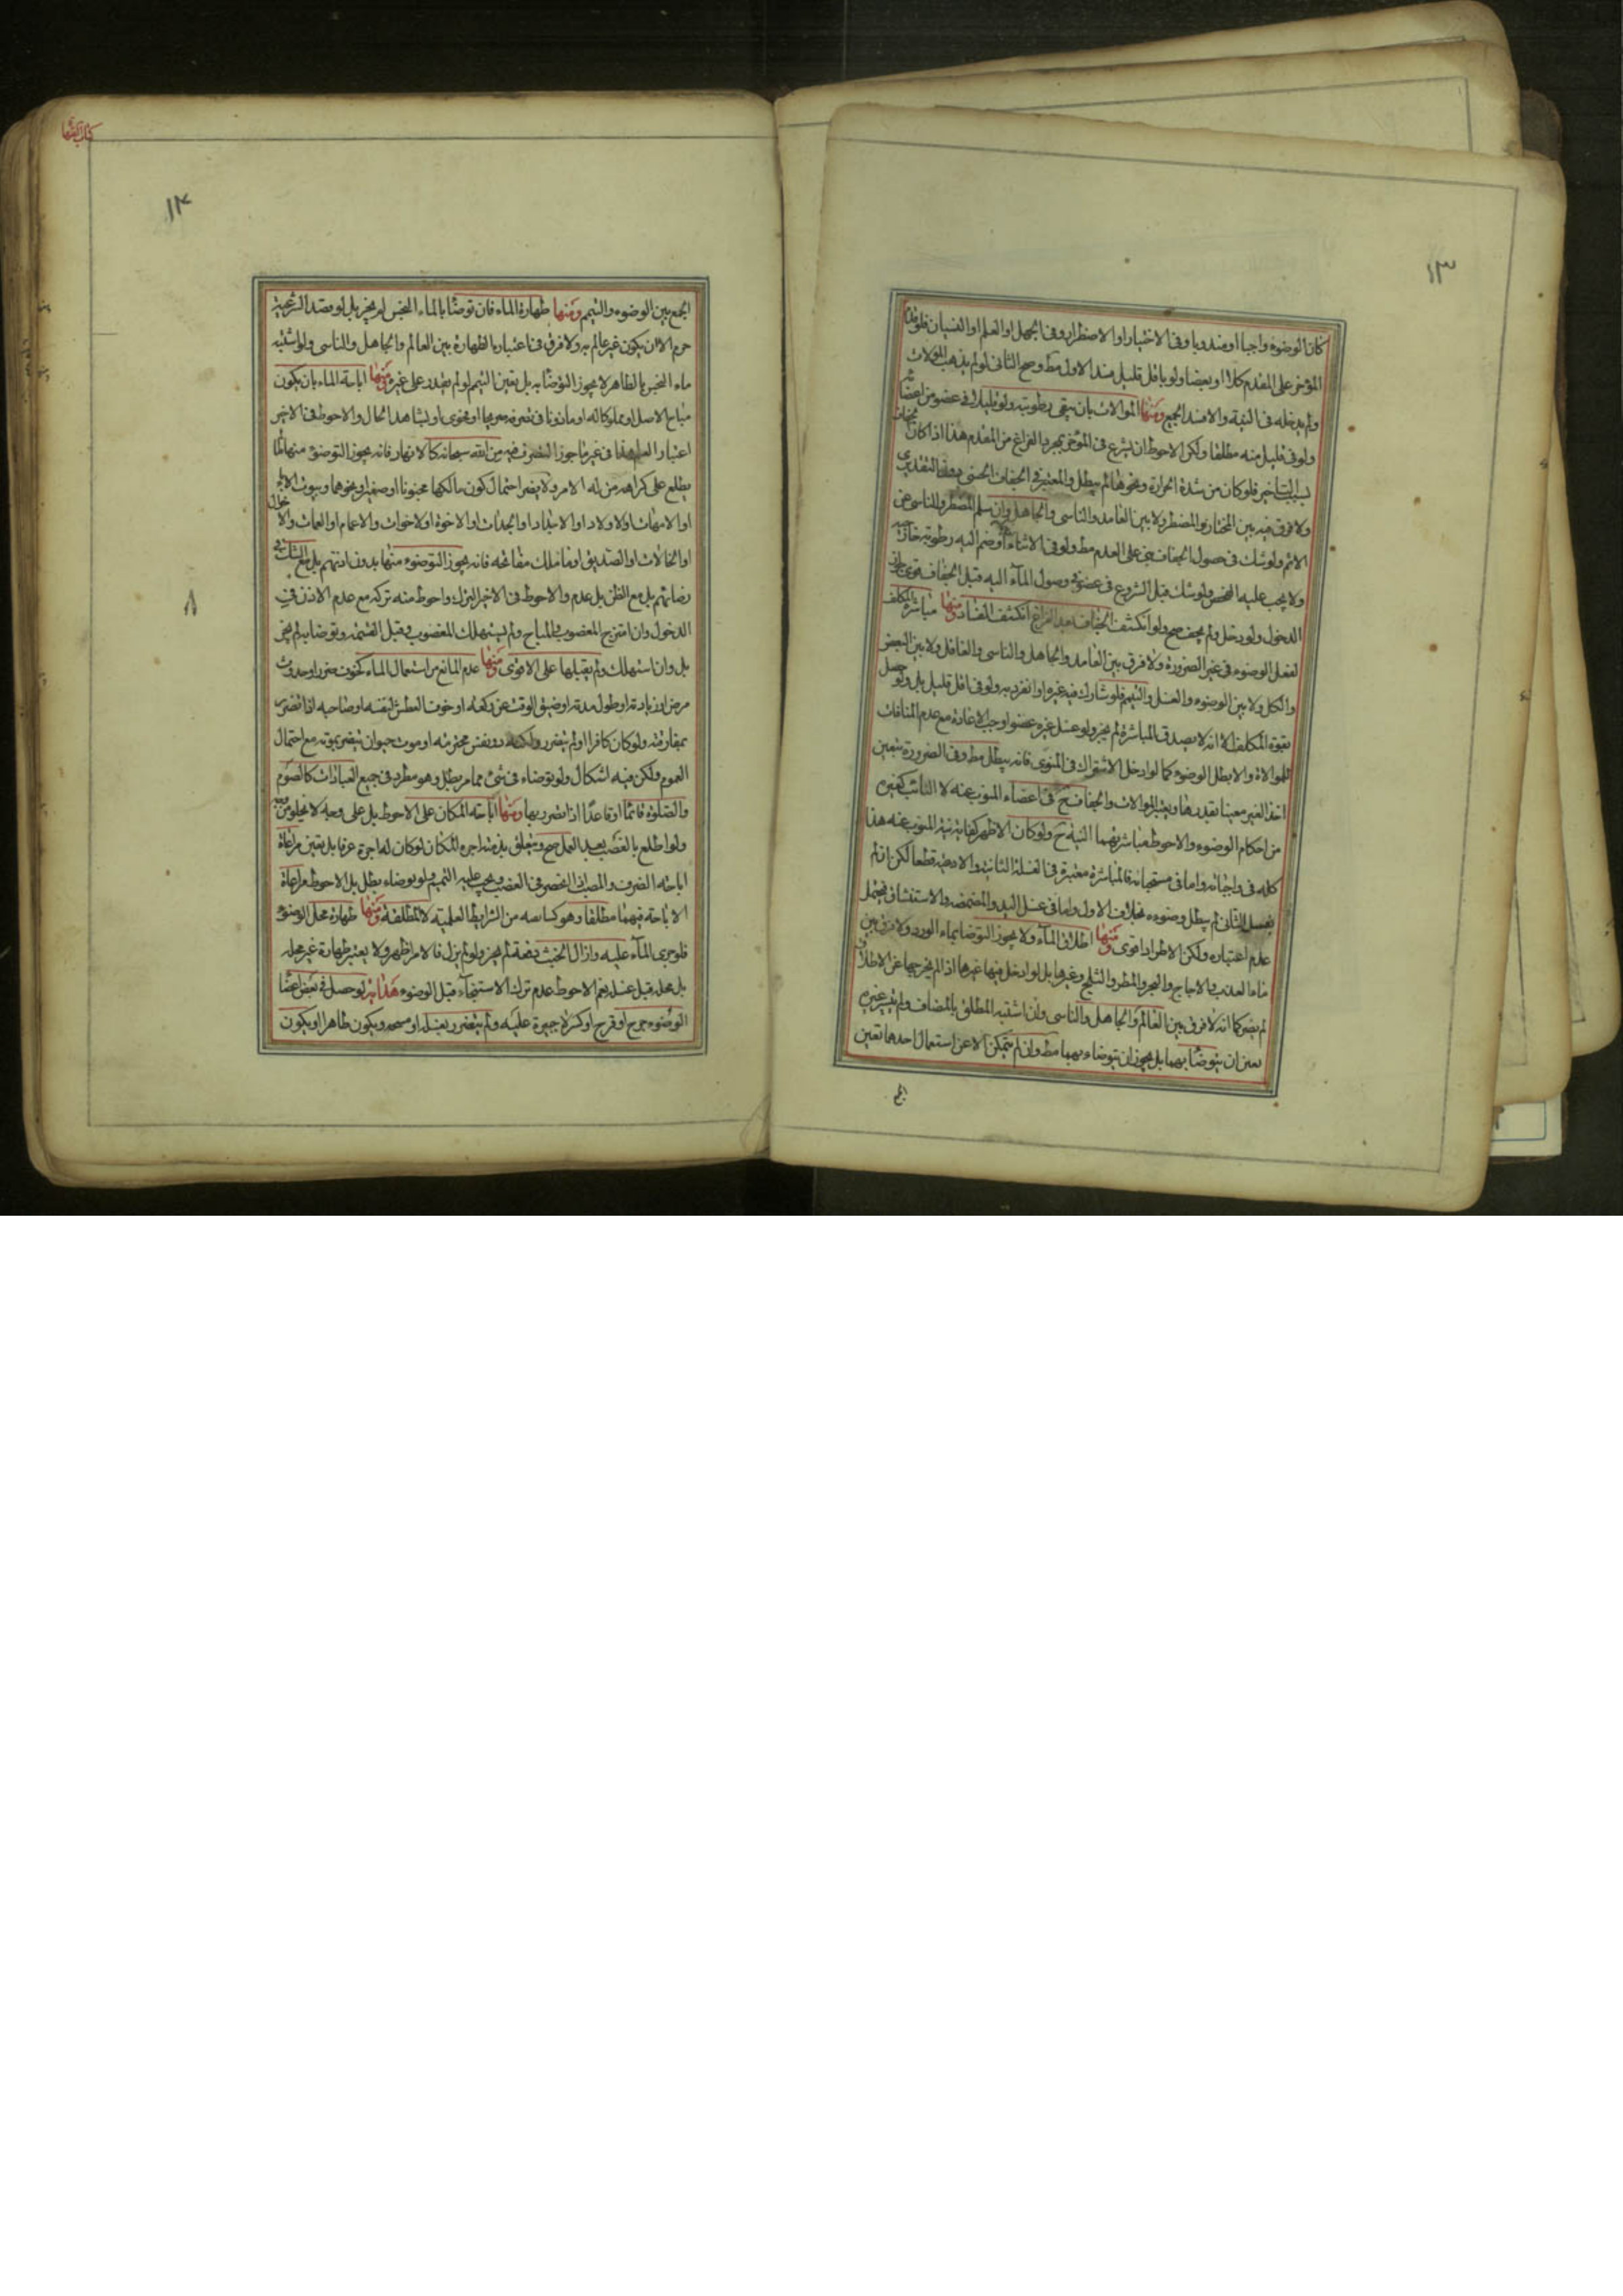 ١٣
كان الوضوء واجبا او مندوبا وفى الاختيار او الاضطرار وفى الجهل او العلم او النسيان فلو قدّم
المؤخر على المقدم كلا او بعضا ولو باقل قليل فسد الاول مط وصح الثانى لو لم يذهب الموالات
ولم يدخله فى النية والا فسد الجميع ومنها الموالات بان يبقى رطوبته ولو قليلا فى عضو من اعضائه
ولو فى قليل منه مطلقا ولكن الاحوط ان يشرع فى المؤخر بمجرد الفراغ من المقدم هذا اذا كان جفاف
بسبب التاخير فلو كان من شدة الحرارة ونحوها لم يبطل والمعتبر فى الجفاف الحسى دون التقديرى
ولا فرق فيه بين المختار والمضطر ولا بين العامد والناسى والجاهل وان سلم المضطر والناسى عن
الاثم ولو شك فى حصول الجفاف بنى على العدم مط ولو فى الاثناء او ضم اليه رطوبة خارجية
ولا يجب عليه الفحص ولو شك قبل الشروع فى عضو فى وصول الماء اليه قبل الجفاف قوى جواز
الدخول ولو دخل ولم يجف صح ولو انكشف الجفاف بعد الفراغ انكشف الفساد ومنها مباشرة المكلف
لفعل الوضوء فى غير الضرورة ولا فرق بين العامد والجاهل والناسى والغافل ولا بين البعض
والكل ولا بين الوضوء والغسل والتيمم فلو شارك فيه غيره او انفرد به ولو فى اقل قليل بل ولو حصل
بقوة المكلف الا انه لا يصدق المباشرة لم يجز ولو غسل غيره عضوا وجب الاعادة مع عدم المنافات
للموالاة والا بطل الوضوء كما لو ادخل الاشتراك فى المنوى فانه يبطل مط وفى الضرورة يتعين
اخذ الغير معينا بقدرها ويعتبر الموالات والجفاف ح فى اعضاء المنوب عنه لا النائب كغيره
من احكام الوضوء والاحوط مباشرتهما النية ح ولو كان الاظهر كفاية نية المنوب عنه هذا
كله فى واجباته واما فى مستحباته فالمباشرة معتبرة فى الغسلة الثانية والادعية قطعا لكن ان لم
يغسل الثانى لم يبطل وضوءه بخلاف الاول واما فى غسل اليد والمضمضة والاستنشاق فيحتمل
عدم اعتباره ولكن الاطراد اقوى ومنها اطلاق الماء ولا يجوز التوضأ بماء الورد ولا فرق بين
ماء العذب والاجاج والبحر والمطر والثلج وغيرها بل لو ادخل فيها غيرها اذا لم يخرجها عن الاطلاق
لم يضر كما انه لا فرق بين العالم والجاهل والناسى وان اشتبه المطلق بالمضاف ولم يتيسر غيره
تعين ان يتوضأ بهما بل يجوز ان يتوضاء بهما مط وان لم يتمكن الا عن استعمال احدهما تعين
الجمع
كتاب الطهارة
١٤
الجمع بين الوضوء والتيمم ومنها طهارة الماء فان توضأ بالماء النجس لم يجز بل لو قصد الشرعية
حرم الا ان يكون غير عالم به ولا فرق فى اعتبار الطهارة بين العالم والجاهل والناسى ولو اشتبه
ماء النجس بالطاهر لا يجوز التوضأ به بل يتعين التيمم لو لم يقدر على غيره ومنها اباحة الماء بان يكون
مباح الاصل او مملوكا له او ماذونا فى تصرفه صريحا او فحوى او بشاهد الحال والاحوط فى الاخير
اعتبار العلم هذا فى غير ما جوز التصرف فيه من الله سبحانه كالانهار فانه يجوز التوضوء منها ما لم
يطلع على كراهة من له الامر ولا يضر احتمال كون مالكها مجنونا او صغيرا ونحوهما وبيوت الاباء
او الامهات او الاولاد او الاجداد او الجدات او الاخوة او الاخوات والاعمام او العمات والاخوال
او الخالات او الصديق او ما ملك مفاتحه فانه يجوز التوضوء منها بدون اذنهم بل مع الشك فى
رضائهم بل مع الظن بل عدم والاحوط فى الاخير الترك واحوط منه تركه مع عدم الاذن فى
الدخول وان امتزج المغصوب فى المباح ولم يستهلك المغصوب فقبل القسمة لو توضأ به لم يجز
بل وان استهلك ولم يقبلها على الاقوى ومنها عدم المانع من استعمال الماء كخوف ضرر او حدوث
مرض او زيادته او طول مدته او ضيق الوقت عن ركعة او خوف العطش لنفسه او صاحبه اذا تضرر
بمفارقته ولو كان كافرا او لم يتضرر ولكنه ذو نفس محترمة او موت حيوان يتضرر بموته مع احتمال
العموم ولكن فيه اشكال ولو توضاء فى شئ مما مر بطل وهو مطرد فى جميع العبادات كالصوم
والصلوة قائما او قاعدا اذا تضرر بها ومنها اباحة المكان على الاحوط بل على وجه لا يخلو من قوة
ولو اطلع بالغصب بعد العمل صح ويتعلق بذمته اجرة المكان لو كان له اجرة عرفا بل يتعين مراعاة
اباحة الظرف والمصب ان انحصر فى الغصب ويجب عليه التيمم ولو توضاء بطل بل الاحوط مراعاة
الاباحة فيهما مطلقا وهو كسابقه من الشرايط العلمية لا المطلقة ومنها طهارة محل الوضوء
فلو جرى الماء عليه وازال الخبث دفعة لم يجز ولو لم يزل فالامر اظهر ولا يعتبر طهارة غير محله
بل محله قبل غسله نعم الاحوط عدم ترك الاستنجاء قبل الوضوء هداية لو حصل فى بعض اعضاء
الوضوء جرح او قرح او كسر لا جبيرة عليه ولم يتضرر بغسله او مسحه ويكون طاهرا او يكون
٨